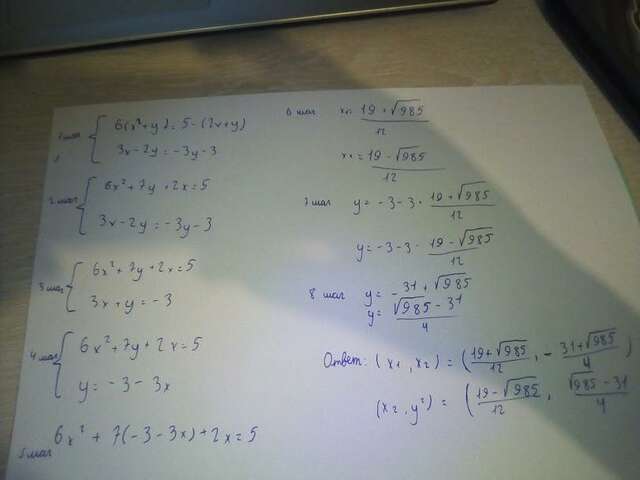 1 шаг { 6(x²+y) = 5 - (2x+y)
3x - 2y = -3y - 3
2 шаг { 6x² + 7y + 2x = 5
3x - 2y = -3y - 3
3 шаг { 6x² + 7y + 2x = 5
3x + y = -3
4 шаг { 6x² + 7y + 2x = 5
y = -3 - 3x
5 шаг 6x² + 7(-3 - 3x) + 2x = 5
6 шаг x₁ = (19 + √985)/12
x₂ = (19 - √985)/12
7 шаг y = -3 - 3 · (19 + √985)/12
y = -3 - 3 · (19 - √985)/12
8 шаг y = - 31 + √985
y = (√985 - 31)/4
Ответ: (x₁, x₂) = ((19 + √985)/12, - (31 + √985)/4)
(x₂, y²) = ((19 - √985)/12, (√985 - 31)/4